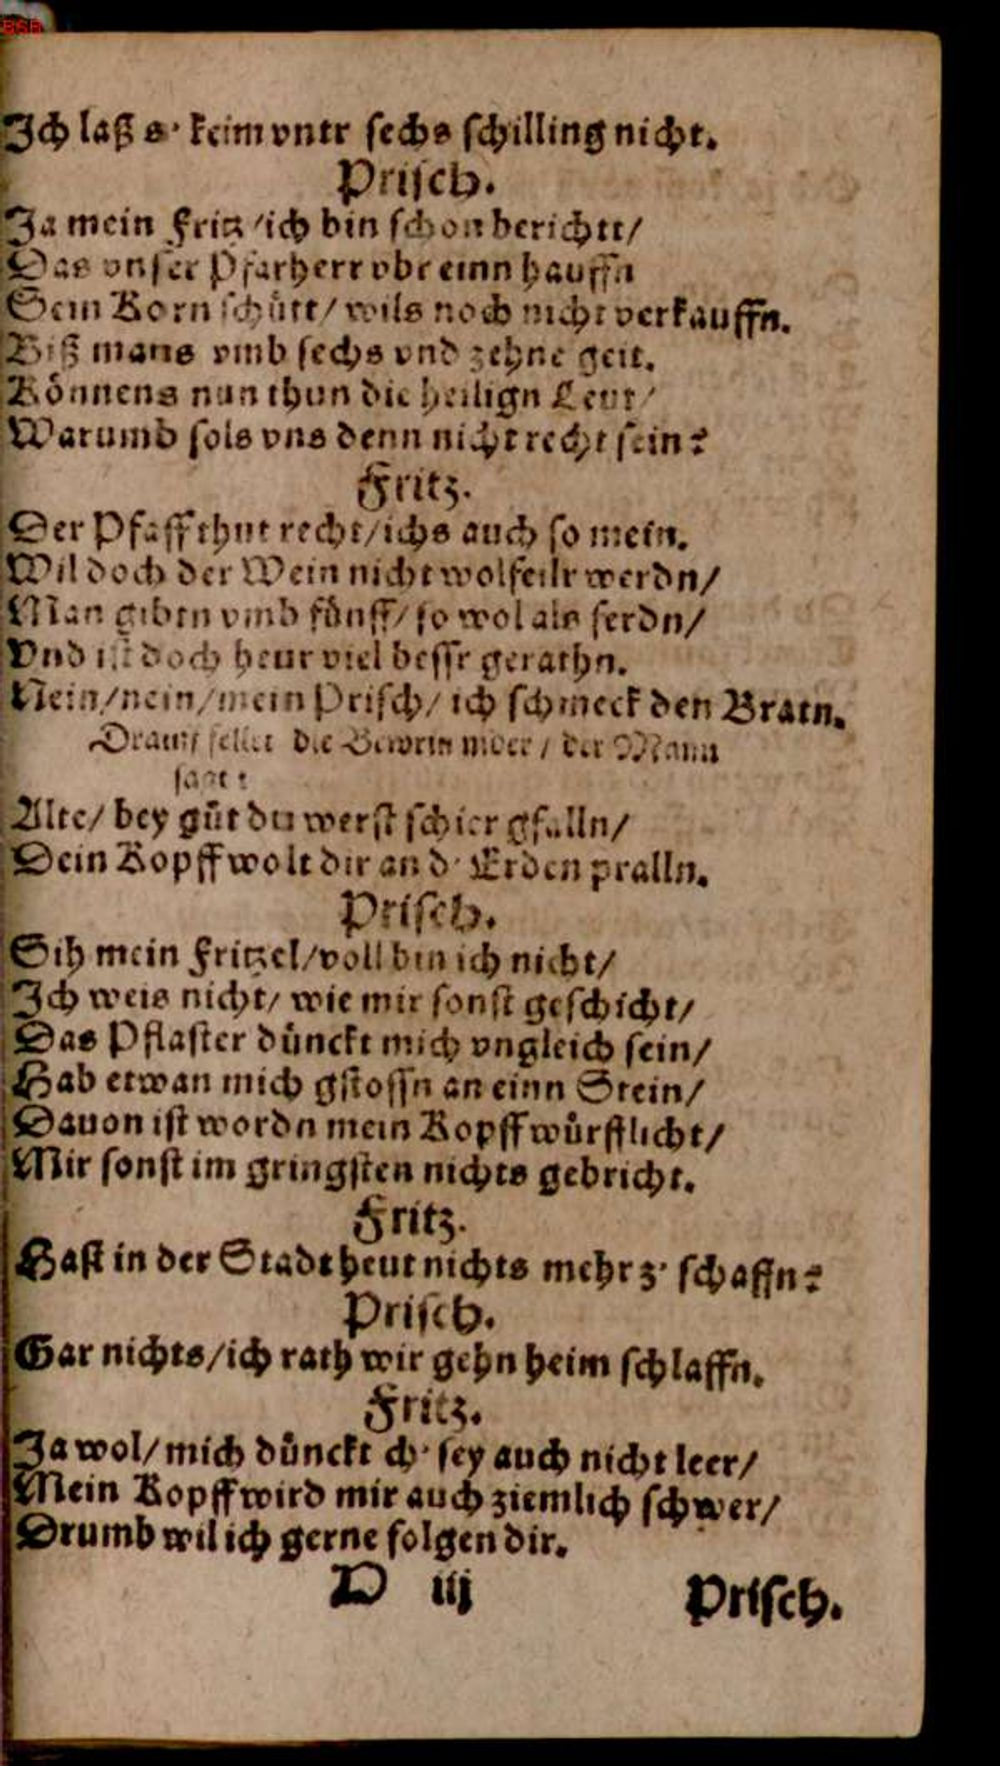 BSB
Ich laß s' keim vntr sechs schilling nicht.
Prisch.
Ja mein Fritz/ich bin schon berichtt/
Das vnser Pfarherr vbr einn hauffn
Sein Korn schütt/wils noch nicht verkauffn.
Biß mans vmb sechs vnd zehne geit.
Könnens nun thun die heilign Leut/
Warumb sols vns denn nicht recht sein?
Fritz.
Der Pfaff thut recht/ichs auch so mein.
Wil doch der Wein nicht wolfeilr werdn/
Man gibtn vmb fünff/so wol als ferdn/
Vnd ist doch heur viel bessr gerathn.
Nein/nein/mein Prisch/ich schmeck den Bratn.
Drauff fellet die Bewrin nider/ der Mann
saget:
Alte/ bey güt du werst schier gfalln/
Dein Kopff wolt dir an d' Erden pralln.
Prisch.
Sih mein Fritzel/voll bin ich nicht/
Ich weis nicht/ wie mir sonst geschicht/
Das Pflaster dünckt mich vngleich sein/
Hab etwan mich gstossn an einn Stein/
Dauon ist wordn mein Kopff würfflicht/
Mir sonst im gringsten nichts gebricht.
Fritz.
Hast in der Stadt heut nichts mehr z' schaffn?
Prisch.
Gar nichts/ich rath wir gehn heim schlaffn.
Fritz.
Ja wol/mich dünckt ch' sey auch nicht leer/
Mein Kopff wird mir auch ziemlich schwer/
Drumb wil ich gerne folgen dir.
D iij
Prisch.